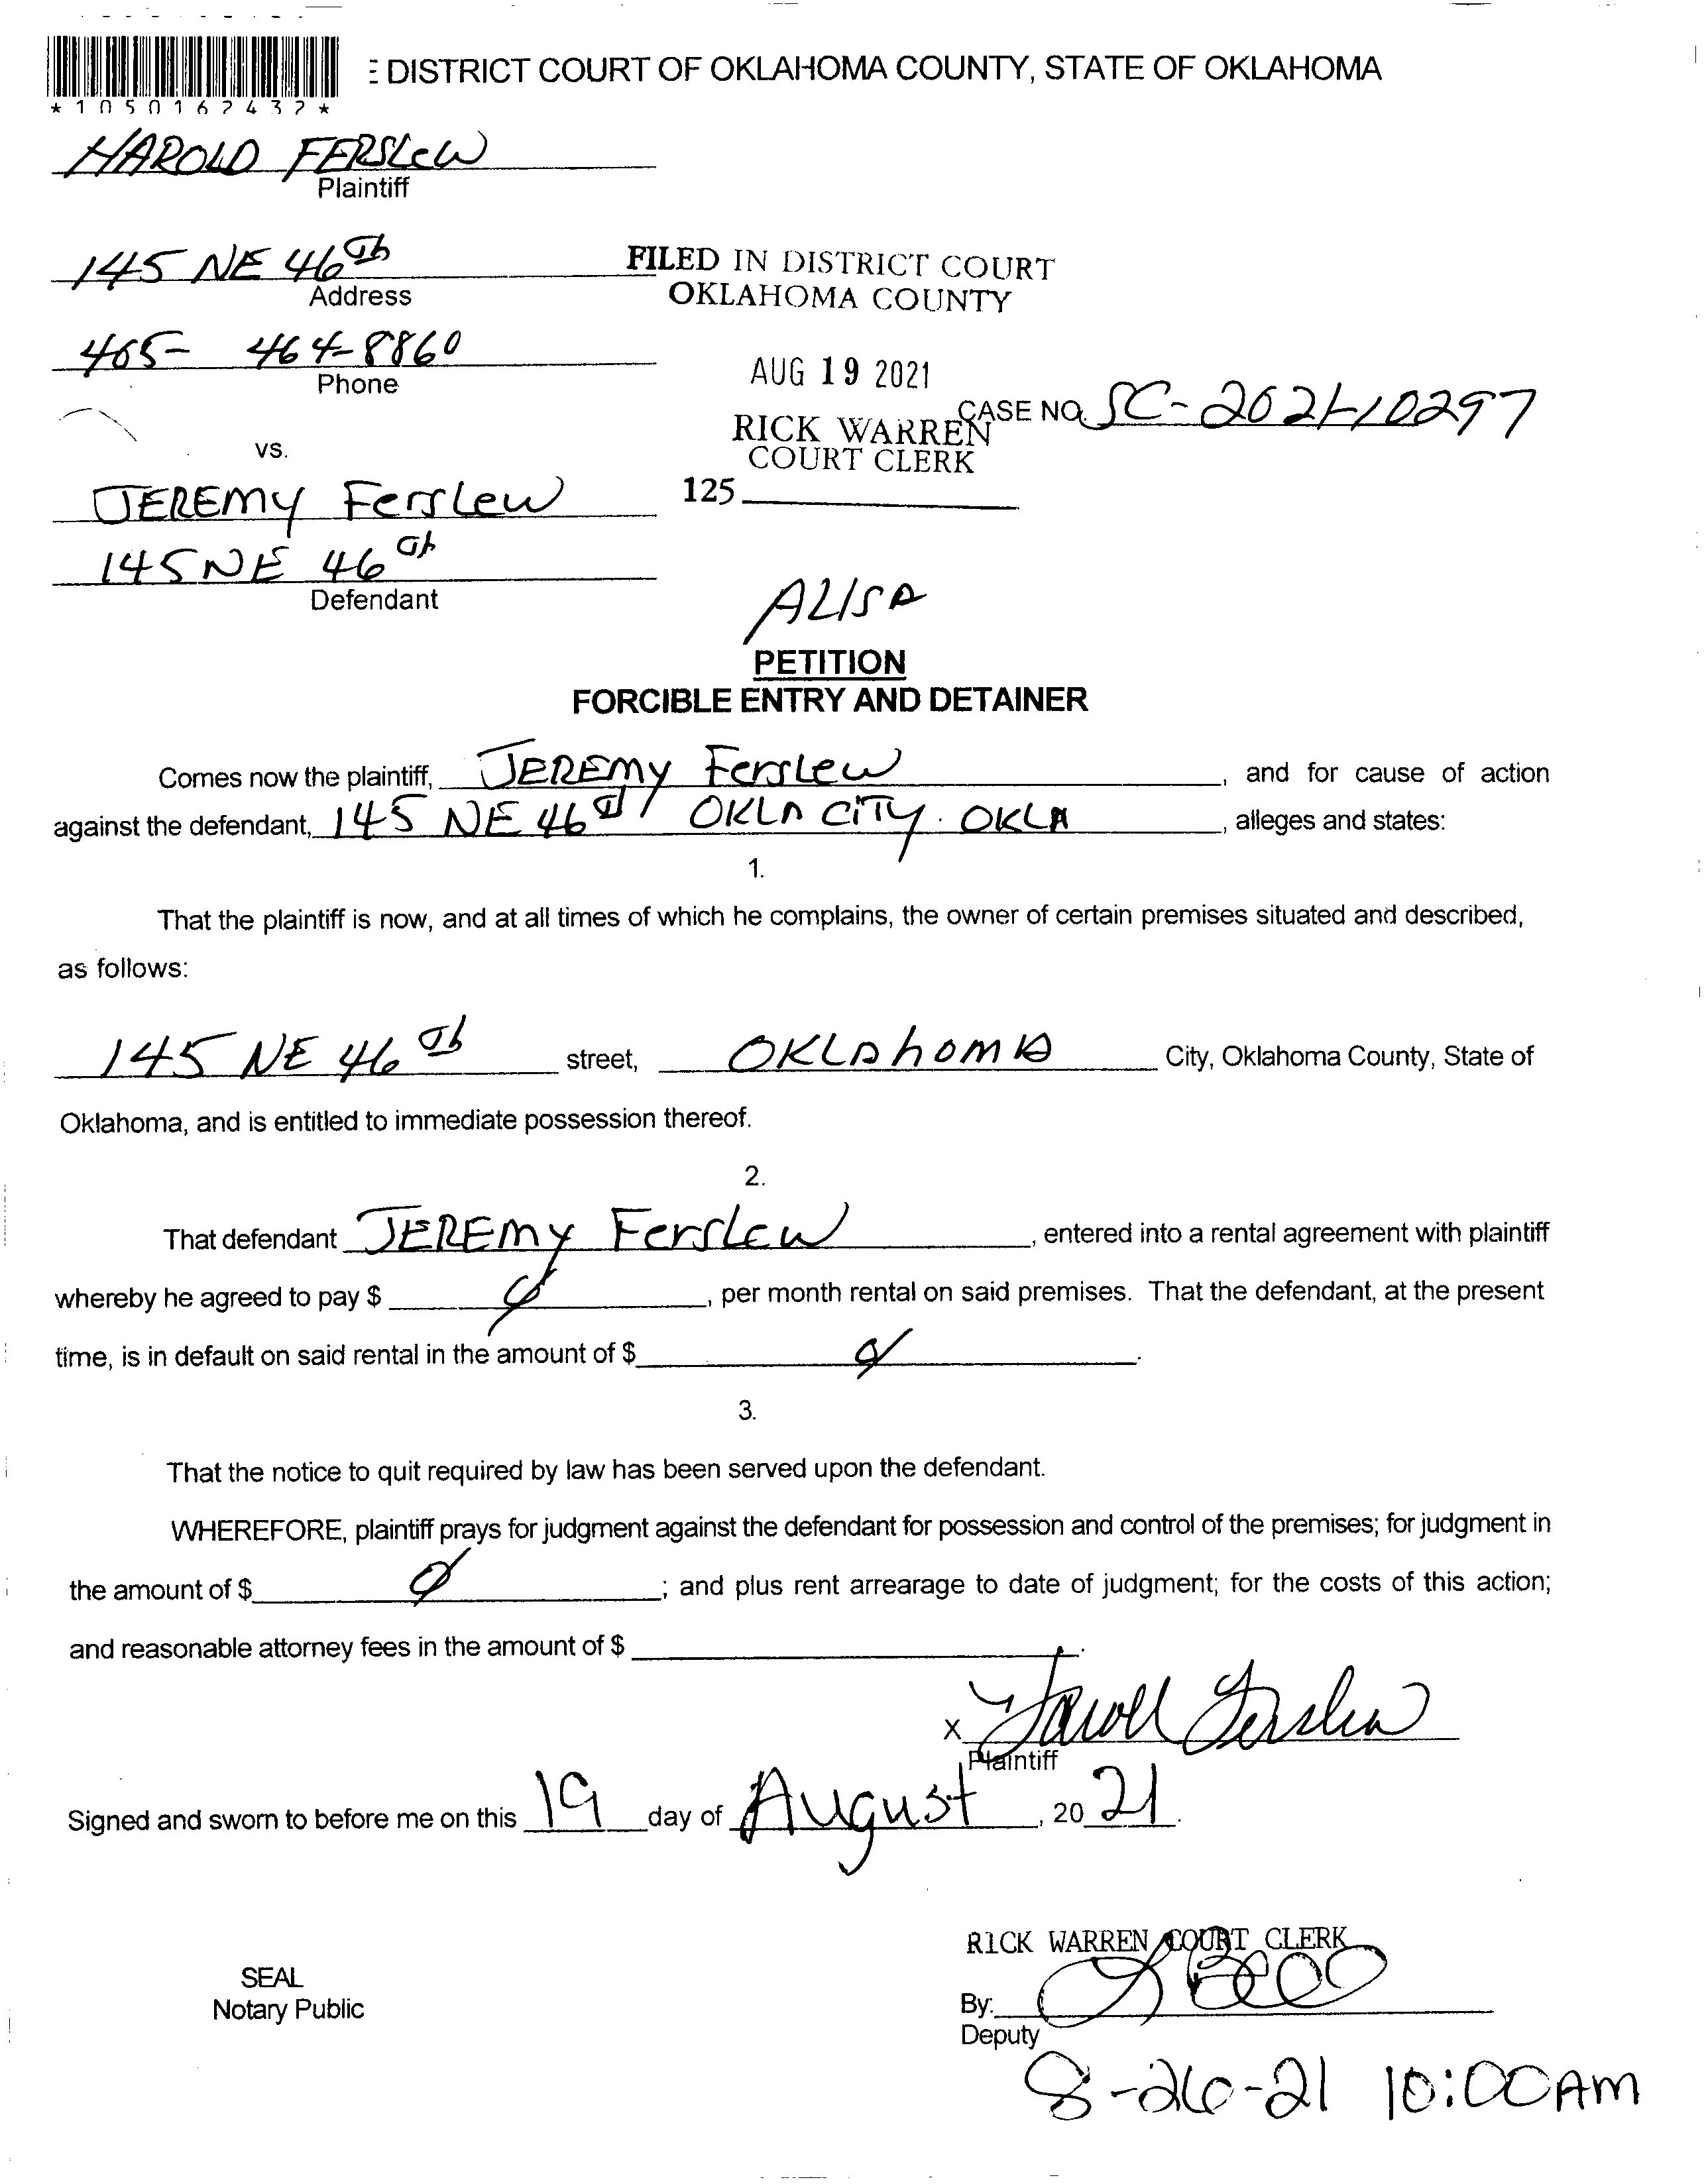 *1050162432*
E DISTRICT COURT OF OKLAHOMA COUNTY, STATE OF OKLAHOMA
HAROLD FERSLEW
Plaintiff
145 NE 46th
Address
405- 464-8860
Phone
FILED IN DISTRICT COURT
OKLAHOMA COUNTY
AUG 19 2021
RICK WARREN
COURT CLERK
125
CASE NO. SC-2021-10297
vs.
JEREMY Ferslew
145 NE 46th
Defendant
ALISA
PETITION
FORCIBLE ENTRY AND DETAINER
Comes now the plaintiff, JEREMY Ferslew, and for cause of action
against the defendant, 145 NE 46th OKLA CITY. OKLA, alleges and states:
1.
That the plaintiff is now, and at all times of which he complains, the owner of certain premises situated and described,
as follows:
145 NE 46th street, OKLAhOMA City, Oklahoma County, State of
Oklahoma, and is entitled to immediate possession thereof.
2.
That defendant JEREMY Ferslew, entered into a rental agreement with plaintiff
whereby he agreed to pay $ 0, per month rental on said premises. That the defendant, at the present
time, is in default on said rental in the amount of $ 0.
3.
That the notice to quit required by law has been served upon the defendant.
WHEREFORE, plaintiff prays for judgment against the defendant for possession and control of the premises; for judgment in
the amount of $ 0; and plus rent arrearage to date of judgment; for the costs of this action;
and reasonable attorney fees in the amount of $
x Harold Ferslew
Plaintiff
Signed and sworn to before me on this 19 day of August, 2021.
RICK WARREN COURT CLERK
SEAL
Notary Public
By:
Deputy
8-26-21 10:00AM